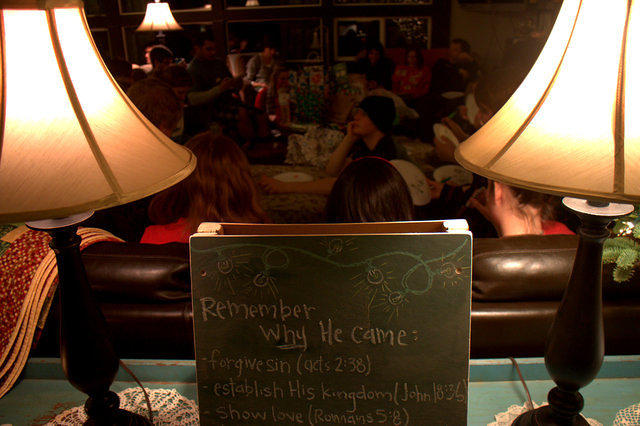 Remember
Why He came:
- forgive sin (acts 2:38)
- establish His kingdom (John 18:36)
- show love (Romans 5:8)